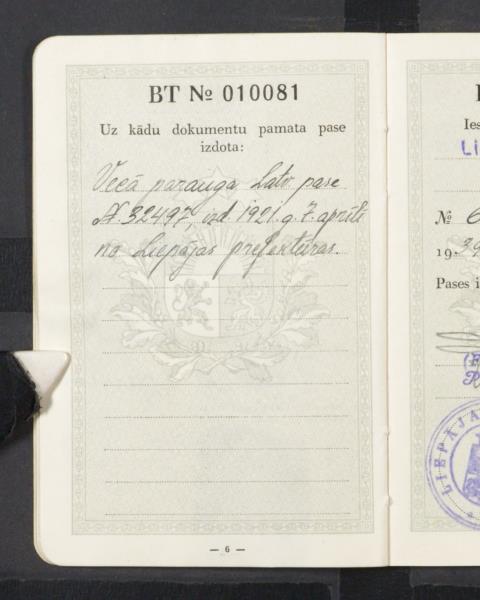 BT № 010081
Uz kādu dokumentu pamata pase
izdota:
Vecā parauga Latv. pase
№ 32497, izd. 1921. g. 7. aprīlī
no Liepājas prefektūras.
— 6 —
Ies
LI
№ 6
19 39
Pases i
LIEPĀJA